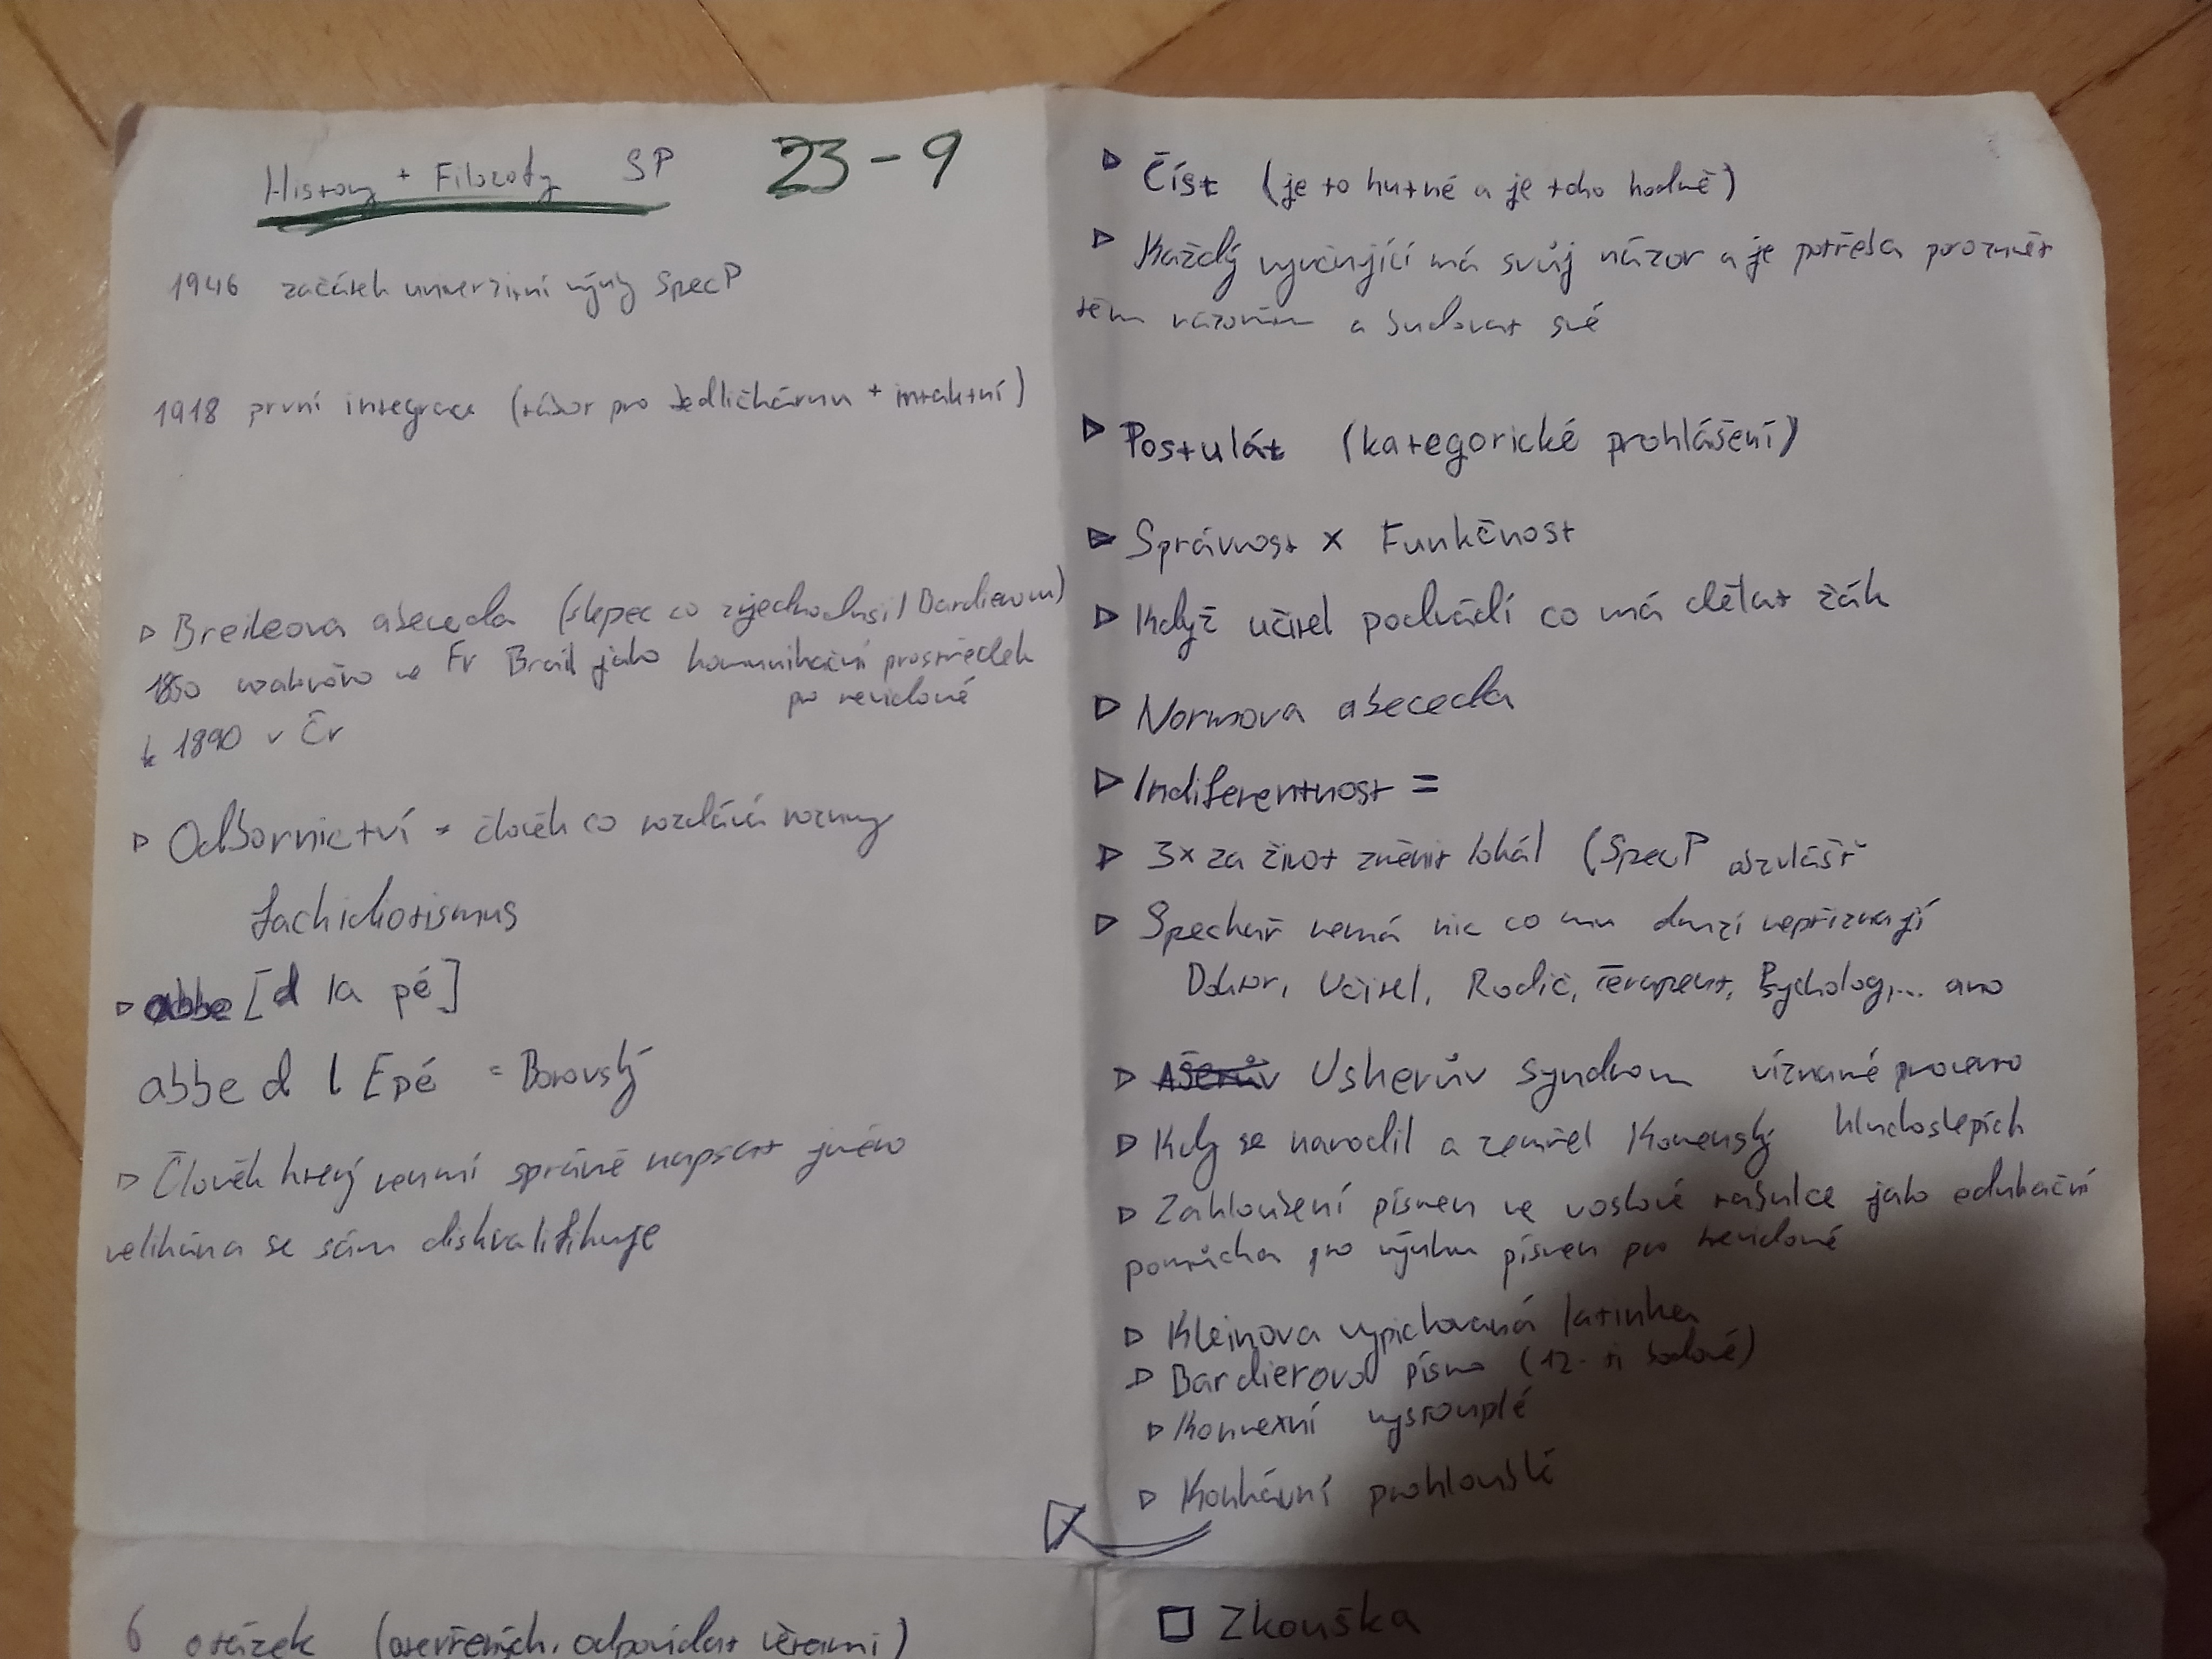 History + Filozofy SP 23-9
1946 začátek univerzitní výuky SpecP
1918 první integrace (tábor pro Jedličkárnu + intaktní)
▷ Breileova abeceda (slepec co zjednodušil Bardierovu)
1850 ve Fr Brail jako komunikační prostředek
pro nevidomé
↳ 1890 v Čr
▷ Odbornictví = člověk co vzdělává rozumy
fachidiotismus
▷ abbe [d la pé]
abbe d l Epé = Borovský
▷ Člověk který neumí správně napsat jméno
velikána se sám diskvalifikuje
6 otázek (otevřených, odpovídat větami)
▷ Číst (je to hutné a je toho hodně)
▷ Každý vyučující má svůj názor a je potřeba porozumět
těm názorům a budovat své
▷ Postulát (kategorické prohlášení)
▷ Správnost x Funkčnost
▷ Když učitel podvádí co má dělat žák
▷ Normova abeceda
▷ Indiferentnost =
▷ 3x za život změnit lokál (SpecP obzvlášť
▷ Speckař nemá nic co mu druzí nepřiznají
Doktor, Učitel, Rodič, Terapeut, Psycholog,... ano
▷ Usherův syndrom
▷ Kdy se narodil a zemřel Komenský hluchoslepích
▷ Zahloubení písmen ve voskové tabulce jako edukační
pomůcka pro výuku písmen pro nevidomé
▷ Kleinova vypichovaná latinka
▷ Bardierovo písmo (12-ti bodové)
▷ Konvexní vystouplé
▷ Konkávní prohloublé
☐ Zkouška